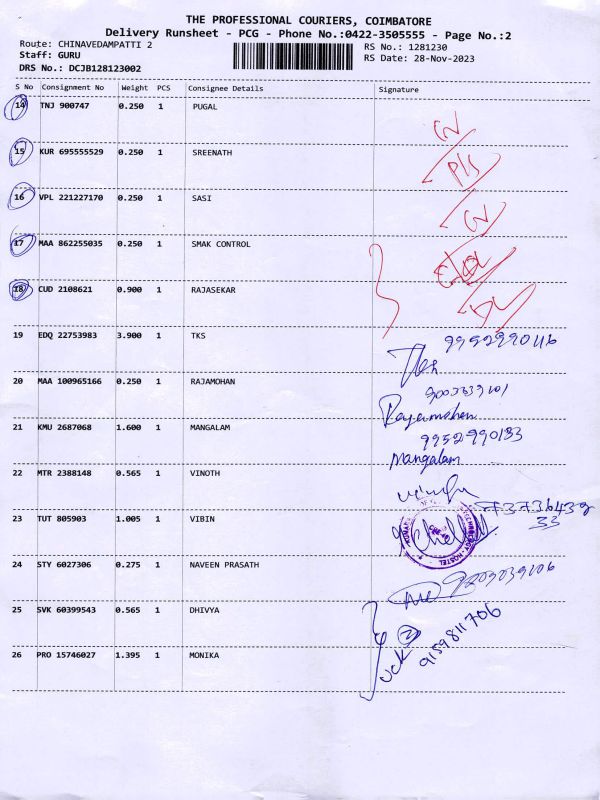 THE PROFESSIONAL COURIERS, COIMBATORE
Delivery Runsheet - PCG - Phone No.:0422-3505555 - Page No.:2
Route: CHINAVEDAMPATTI 2
RS No.: 1281230
Staff: GURU
RS Date: 28-Nov-2023
DRS No.: DCJB128123002
S No Consignment No Weight PCS Consignee Details Signature
14 TNJ 900747 0.250 1 PUGAL
15 KUR 695555529 0.250 1 SREENATH
P/S
16 VPL 221227170 0.250 1 SASI
17 MAA 862255035 0.250 1 SMAK CONTROL
18 CUD 2108621 0.900 1 RAJASEKAR
19 EDQ 22753983 3.900 1 TKS
20 MAA 100965166 0.250 1 RAJAMOHAN
Rajamohan
21 KMU 2687068 1.600 1 MANGALAM
9952990133
Mangalam
22 MTR 2388148 0.565 1 VINOTH
23 TUT 805903 1.005 1 VIBIN
24 STY 6027306 0.275 1 NAVEEN PRASATH
25 SVK 60399543 0.565 1 DHIVYA
9159811706
26 PRO 15746027 1.395 1 MONIKA